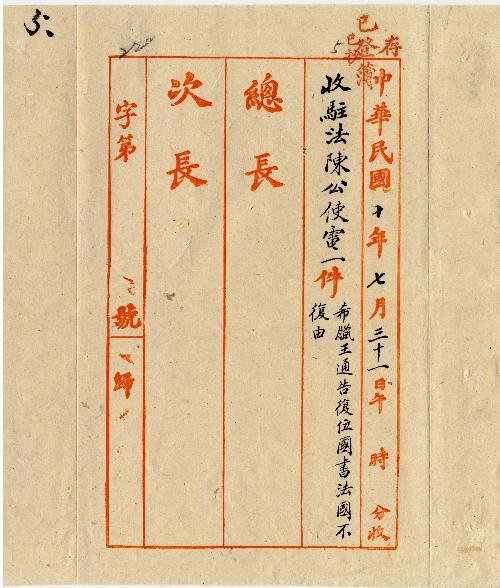 5、
已登簿
存
5
222
中華民國十年七月三十一日午 時 分收
收駐法陳公使電一件
希臘王通告復位國書法國不
復由
總長
次長
字第 號
歸